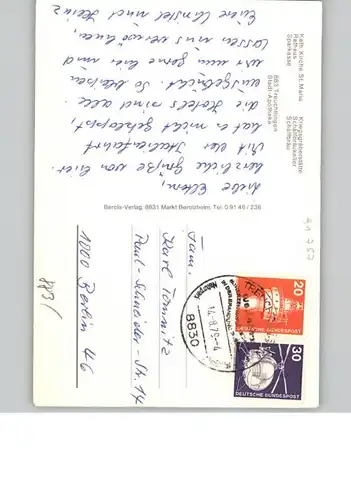 Kath. Kirche St. Maria
Rathaus
Sparkasse
Kriegsgräberstätte
Schäffbräukeller
Schäffbräu
883 Treuchtlingen
Stadt-Apotheke
Liebe Eltern,
herzliche Grüße von hier.
Mit der Italienfahrt
hat es nicht geklappt,
die Hotels sind alle
ausgebucht. So bleiben
wir nun gerne hier und
lassen uns verwöhnen.
Eure Christel und Heinz
Berolu-Verlag, 8831 Markt Berolzheim, Tel. 0 91 46 / 236
Fam.
Karl
Paul-Schneider-Str. 14
1000 Berlin 46
8830
14.-8.79-4
Naturpark
20
DEUTSCHE BUNDESPOST
30
DEUTSCHE BUNDESPOST
883/